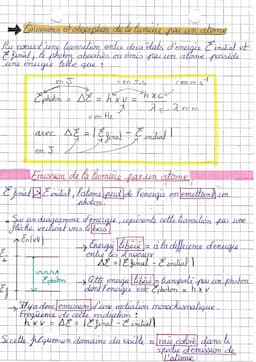 Émission et absorption de la lumière par un atome
Au cours d'une transition entre deux états d'énergie E initial et
E final, le photon absorbé ou émis par un atome possède
une énergie telle que :
en J en J.s c en m.s⁻¹
E photon = ΔE = h × ν = h × c
λ λ en m
ν en Hz
avec ΔE = |E final - E initial|
en J
Émission de la lumière par un atome
E final E initial, l'atome perd de l'énergie en émettant un
photon.
Sur un diagramme d'énergie, représente cette transition par une
flèche verticale vers le bas.
E (eV)
Énergie libérée = à la différence d'énergie
entre les 2 niveaux
ΔE = |E final - E initial|
E photon
Cette énergie libérée = transporté par un photon
dont l'énergie est E photon = h × ν
Il y a donc émission d'une radiation monochromatique.
Fréquence de cette radiation :
h × ν = ΔE = |E final - E initial|
Si cette fréquence = domaine du visible = raie colorée dans le
spectre d'émission de
l'atome